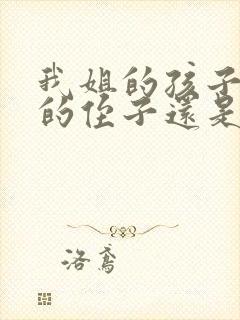 我姐的孩子
的侄子還是
洛鳶